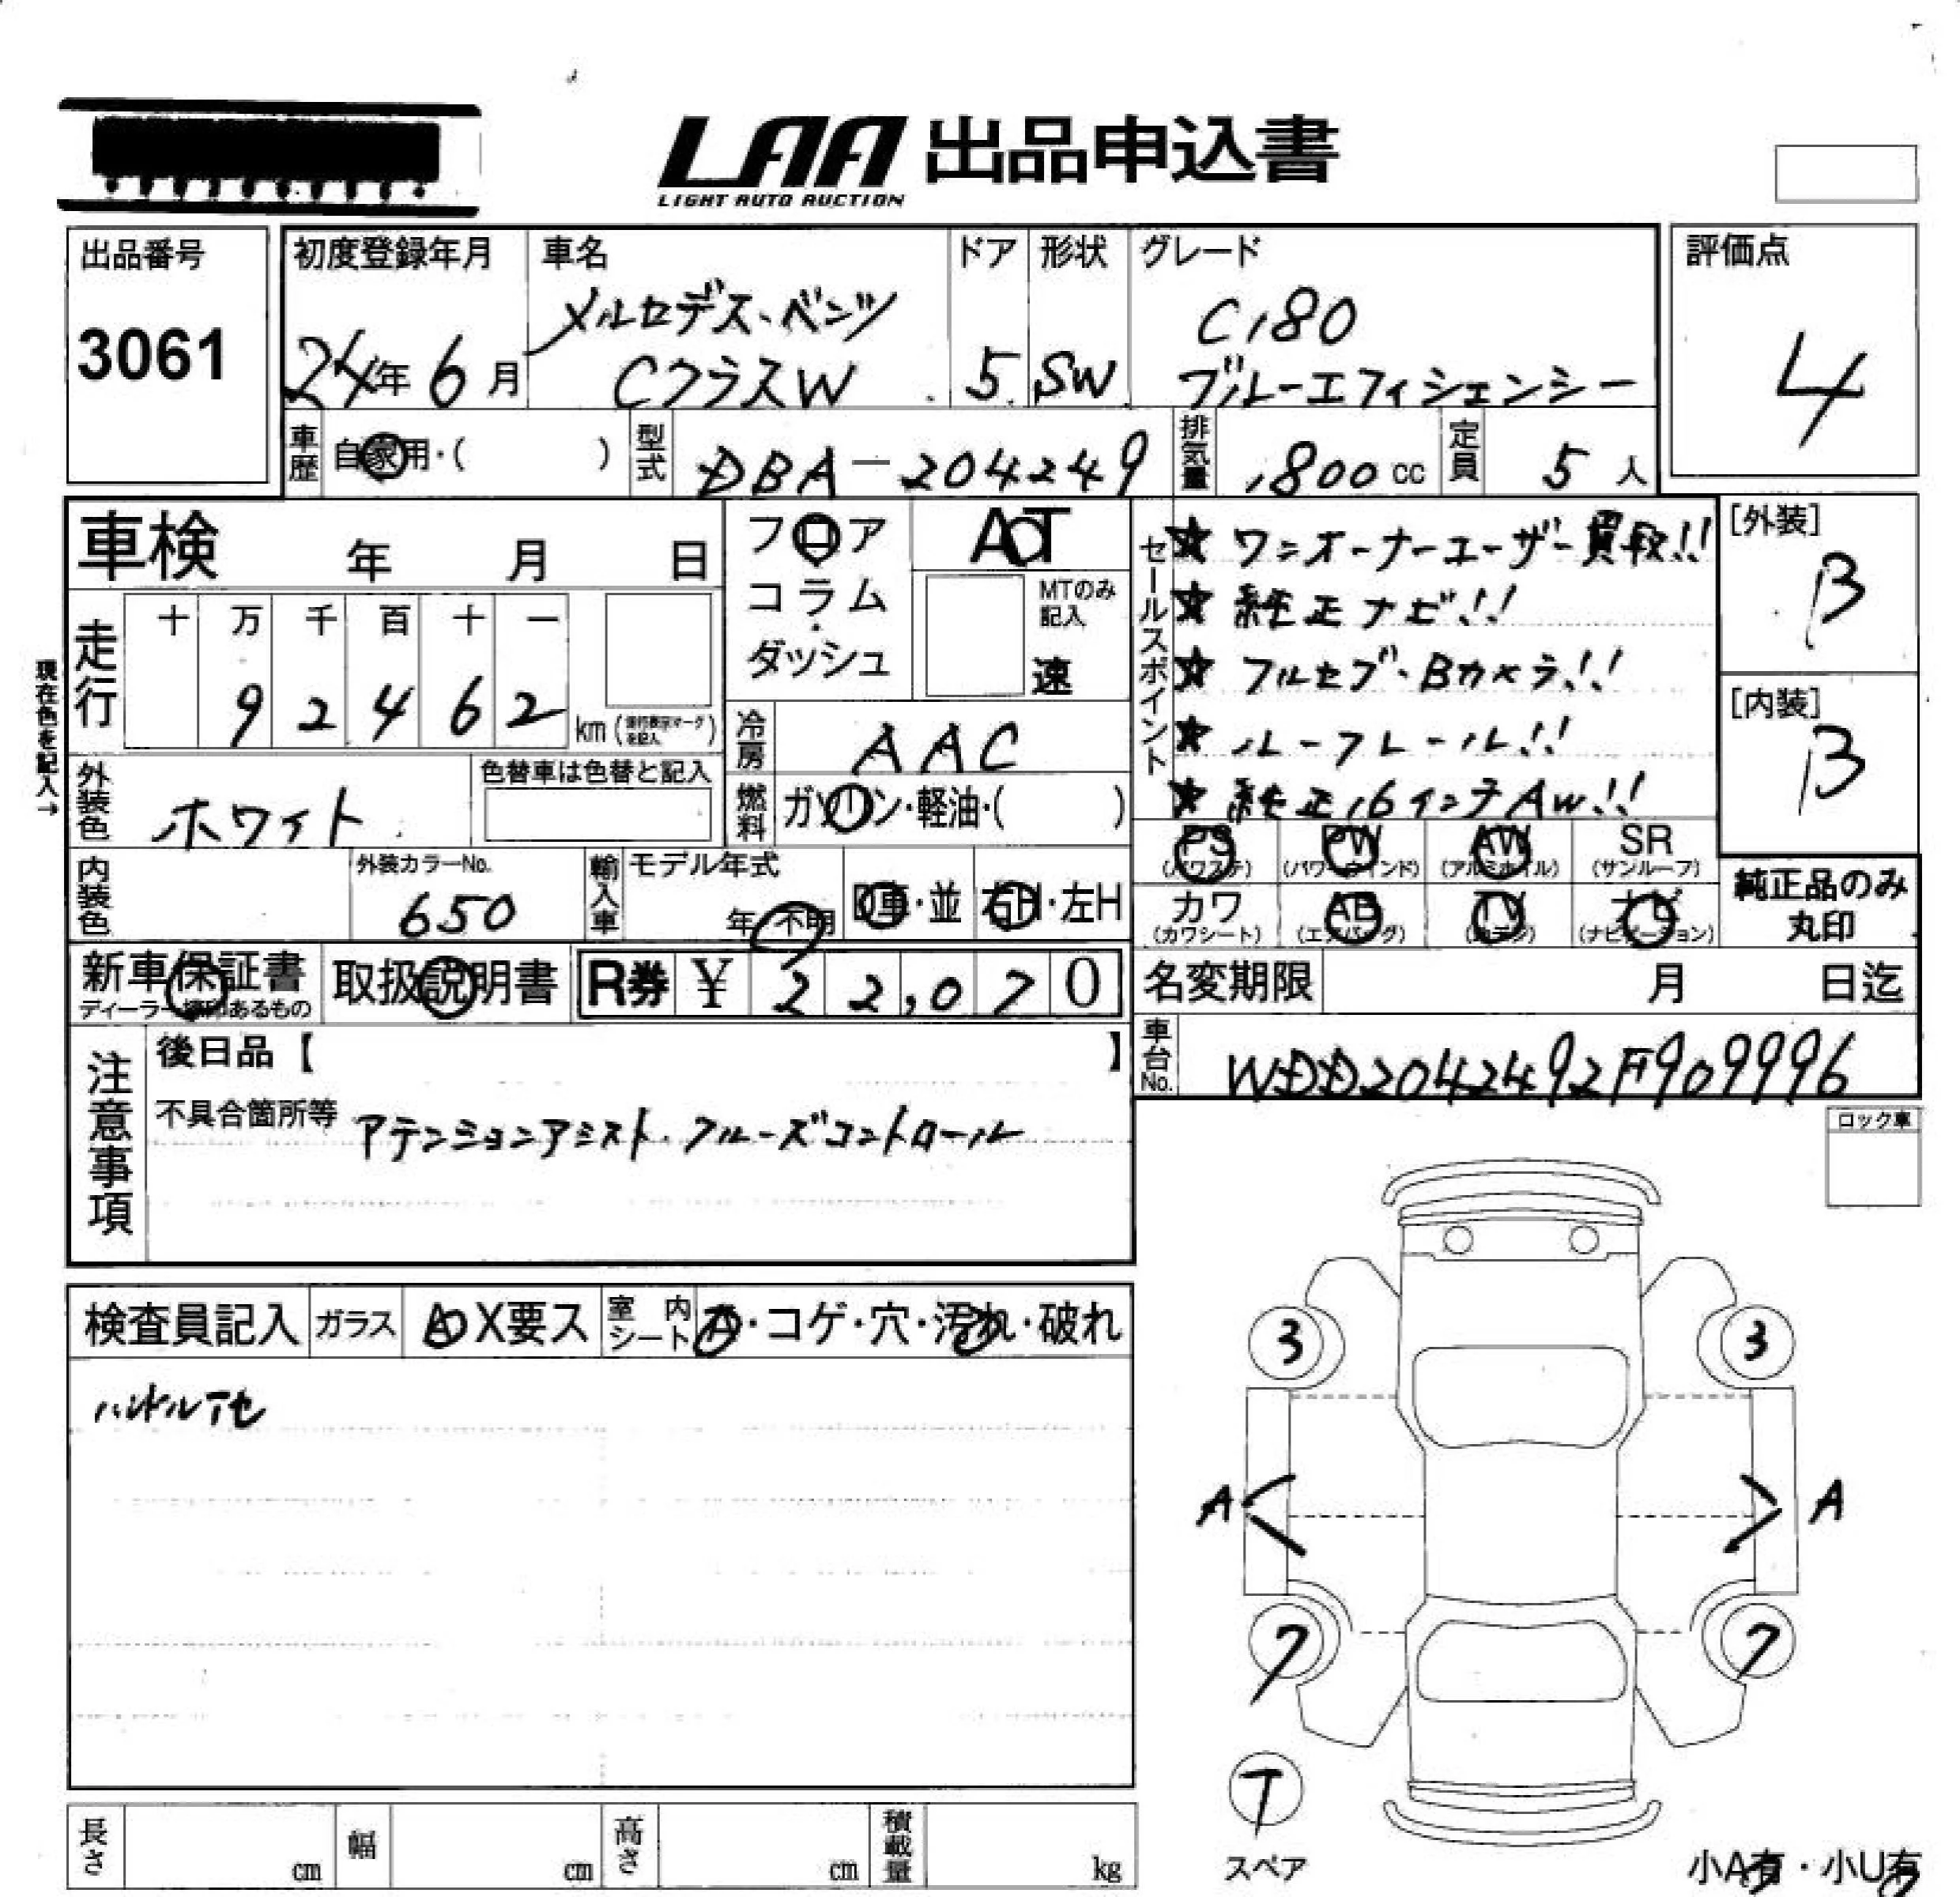 LAA 出品申込書
LIGHT AUTO AUCTION
出品番号
3061
初度登録年月
24年 6月
車名
メルセデス・ベンツ
CクラスW
ドア
5
形状
SW
グレード
C180
ブルーエフィシェンシー
評価点
4
車歴 自家用・( )
型式 DBA-204249
排気量 1800 cc
定員 5 人
車検 年 月 日
フロア
コラム
・
ダッシュ
AT
MTのみ
記入
速
セールスポイント
★ ワンオーナーユーザー買取!!
★ 純正ナビ!!
★ フルセグ・Bカメラ!!
★ ルーフレール!!
★ 純正16インチAW!!
[外装]
B
[内装]
B
現在色を記入→
走行
十 万 千 百 十 一
9 2 4 6 2 km
冷房 AAC
外装色 ホワイト
色替車は色替と記入
燃料 ガソリン・軽油・( )
PS (パワステ)
PW (パワーウインド)
AW (アルミホイル)
SR (サンルーフ)
カワ (カワシート)
AB (エアバッグ)
TV
ナビ (ナビゲーション)
純正品のみ
丸印
内装色
外装カラーNo.
650
輸入車
モデル年式
年・不明
D車・並
右H・左H
新車保証書
取扱説明書
R券 ¥ 22,070
名変期限 月 日迄
車台No. WDD2042492F909996
注意事項
後日品【 】
不具合箇所等 アテンションアシスト・クルーズコントロール
ロック車
検査員記入
ガラス A X要ス
室内シート ・コゲ・穴・汚れ・破れ
3 3
A A
7 7
T
スペア
長さ cm
幅 cm
高さ cm
積載量 kg
小A有・小U有